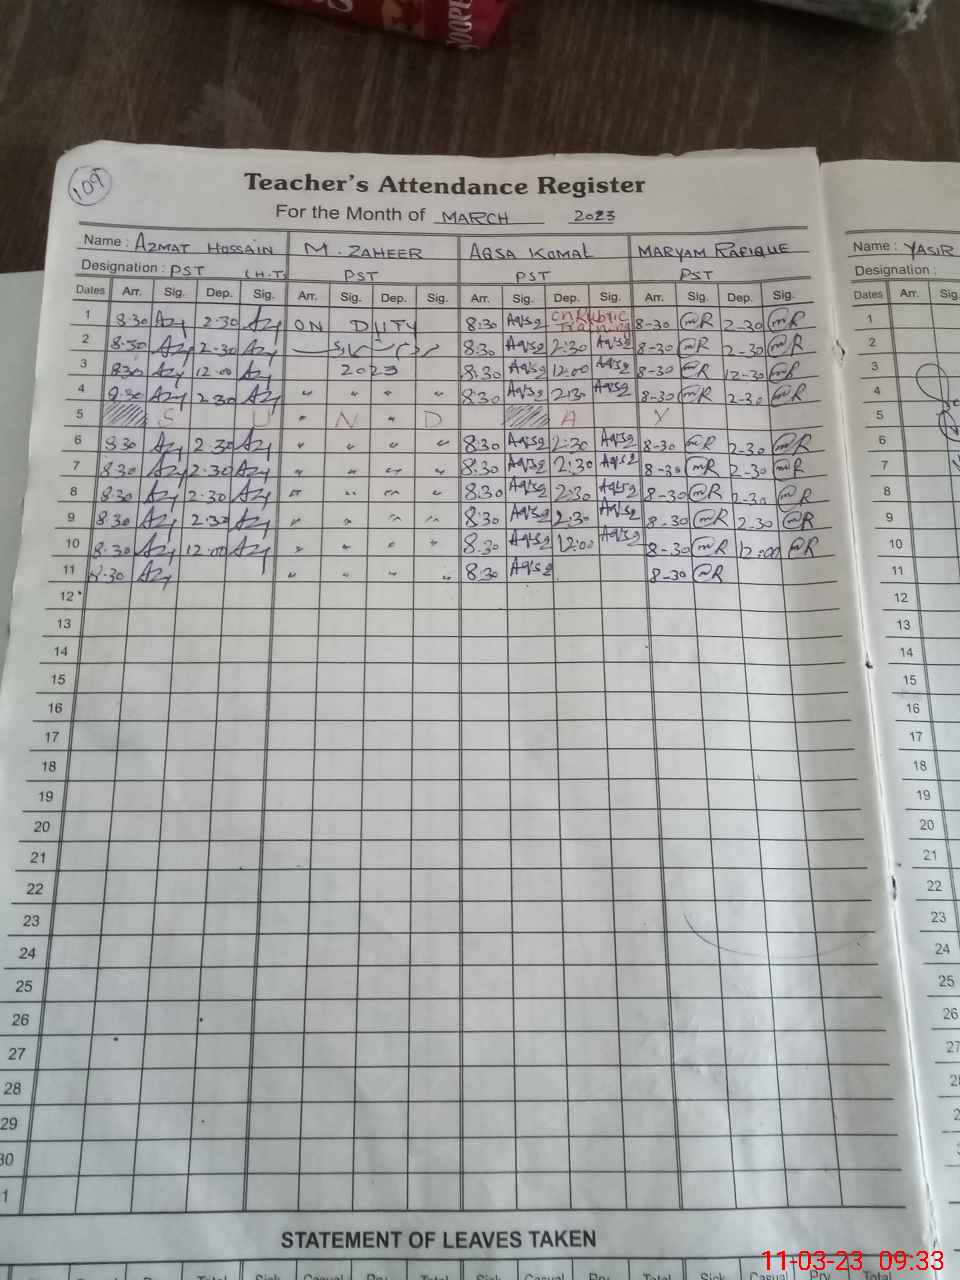 109
Teacher's Attendance Register
For the Month of MARCH 2023
Name : AZMAT HOSSAIN M. ZAHEER AQSA KOMAL MARYAM RAFIQUE Name : YASIR
Designation : PST (H.T) PST PST PST Designation :
Dates Arr. Sig. Dep. Sig. Arr. Sig. Dep. Sig. Arr. Sig. Dep. Sig. Arr. Sig. Dep. Sig. Dates Arr. Sig.
1 8.30 Azy 2.30 Azy ON DUTY 8:30 Aqsa On Rubric Training 8-30 mR 2-30 mR 1
2 8.30 Azy 2-30 Azy 8:30 Aqsa 2:30 Aqsa 8-30 mR 2-30 mR 2
3 8.30 Azy 12.00 Azy 2023 8:30 Aqsa 12:00 Aqsa 8-30 mR 12-30 mR 3
4 8.30 Azy 2.30 Azy " " " " 8:30 Aqsa 2:30 Aqsa 8-30 mR 2-30 mR 4
5 S U " N " D A Y 5
6 8.30 Azy 2.30 Azy " " " " 8:30 Aqsa 2:30 Aqsa 8-30 mR 2-30 mR 6
7 8.30 Azy 2.30 Azy " " " " 8:30 Aqsa 2:30 Aqsa 8-30 mR 2-30 mR 7
8 8.30 Azy 2.30 Azy " " " " 8:30 Aqsa 2:30 Aqsa 8-30 mR 2-30 mR 8
9 8.30 Azy 2.30 Azy " " " " 8:30 Aqsa 2:30 Aqsa 8-30 mR 2-30 mR 9
10 8.30 Azy 12.00 Azy " " " " 8:30 Aqsa 12:00 Aqsa 8-30 mR 12:00 mR 10
11 8.30 Azy " " " " 8:30 Aqsa 8-30 mR 11
12 12
13 13
14 14
15 15
16 16
17 17
18 18
19 19
20 20
21 21
22 22
23 23
24 24
25 25
26 26
27 27
28 28
29
30
1
STATEMENT OF LEAVES TAKEN
Total Sick Casual Prv. Total Sick Casual Prv. Total Sick Casual Prv. Total
11-03-23 09:33